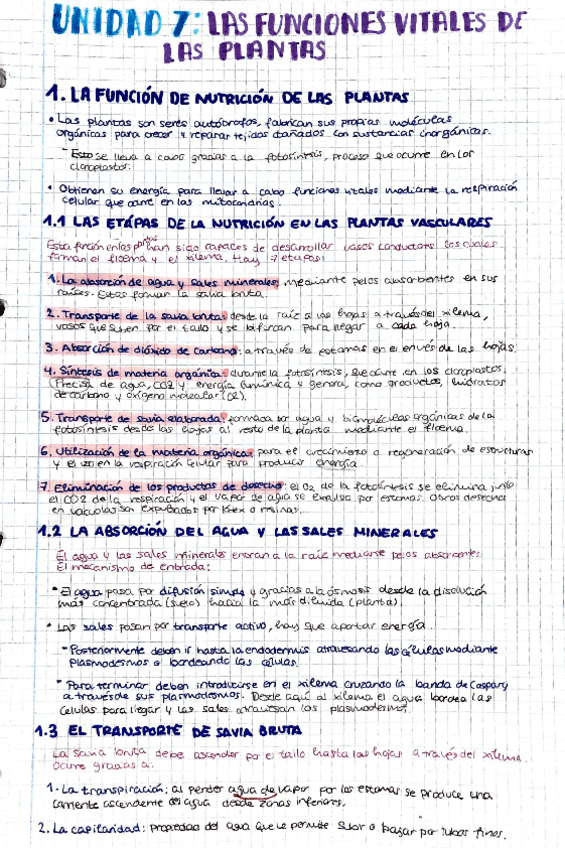 UNIDAD 7: LAS FUNCIONES VITALES DE
LAS PLANTAS
1. LA FUNCIÓN DE NUTRICIÓN DE LAS PLANTAS
• Las plantas son seres autótrofos, fabrican sus propias moléculas
orgánicas para crecer y reparar tejidos dañados con sustancias inorgánicas.
- Esto se lleva a cabo gracias a la fotosíntesis, proceso que ocurre en los
cloroplastos.
• Obtienen su energía para llevar a cabo funciones vitales mediante la respiración
celular que ocurre en las mitocondrias.
1.1 LAS ETAPAS DE LA NUTRICIÓN EN LAS PLANTAS VASCULARES
Esta función en las plantas han sido capaces de desarrollar vasos conductores los cuales
forman el floema y el xilema. Hay 7 etapas:
1. La absorción de agua y sales minerales, mediante pelos absorbentes en sus
raíces. Estas forman la savia bruta.
2. Transporte de la savia bruta: desde la raíz a las hojas a través del xilema,
vasos que suben por el tallo y se bifurcan para llegar a cada hoja.
3. Absorción de dióxido de carbono: a través de estomas en el envés de las hojas.
4. Síntesis de materia orgánica: durante la fotosíntesis, que ocurre en los cloroplastos.
(Precisa de agua, CO2 y energía lumínica y genera, como productos, hidratos
de carbono y oxígeno molecular (O2).
5. Transporte de savia elaborada: formada por agua y biomoléculas orgánicas de la
fotosíntesis desde las hojas al resto de la planta mediante el floema.
6. Utilización de la materia orgánica: para el crecimiento o regeneración de estructuras
y el uso en la respiración celular para producir energía.
7. Eliminación de los productos de desecho: el O2 de la fotosíntesis se elimina junto
el CO2 de la respiración y el vapor de agua se expulsa por estomas. Otros desechos
en vacuolas son expulsados por látex o resinas.
1.2 LA ABSORCIÓN DEL AGUA Y LAS SALES MINERALES
El agua y las sales minerales entran a la raíz mediante pelos absorbentes
El mecanismo de entrada:
• El agua pasa por difusión simple y gracias a la ósmosis desde la disolución
más concentrada (suelo) hacia la más diluida (planta).
• Las sales pasan por transporte activo, hay que aportar energía.
- Posteriormente deben ir hasta la endodermis atravesando las células mediante
plasmodesmos o bordeando las células.
• Para terminar deben introducirse en el xilema cruzando la banda de Caspary
a través de sus plasmodesmos. Desde aquí al xilema el agua bordea las
células para llegar y las sales atraviesan los plasmodesmos
1.3 EL TRANSPORTE DE SAVIA BRUTA
La savia bruta debe ascender por el tallo hasta las hojas a través del xilema.
Ocurre gracias a:
1. La transpiración: al perder agua de vapor por los estomas se produce una
corriente ascendente del agua desde zonas inferiores.
2. La capilaridad: propiedad del agua que le permite subir o bajar por tubos finos.